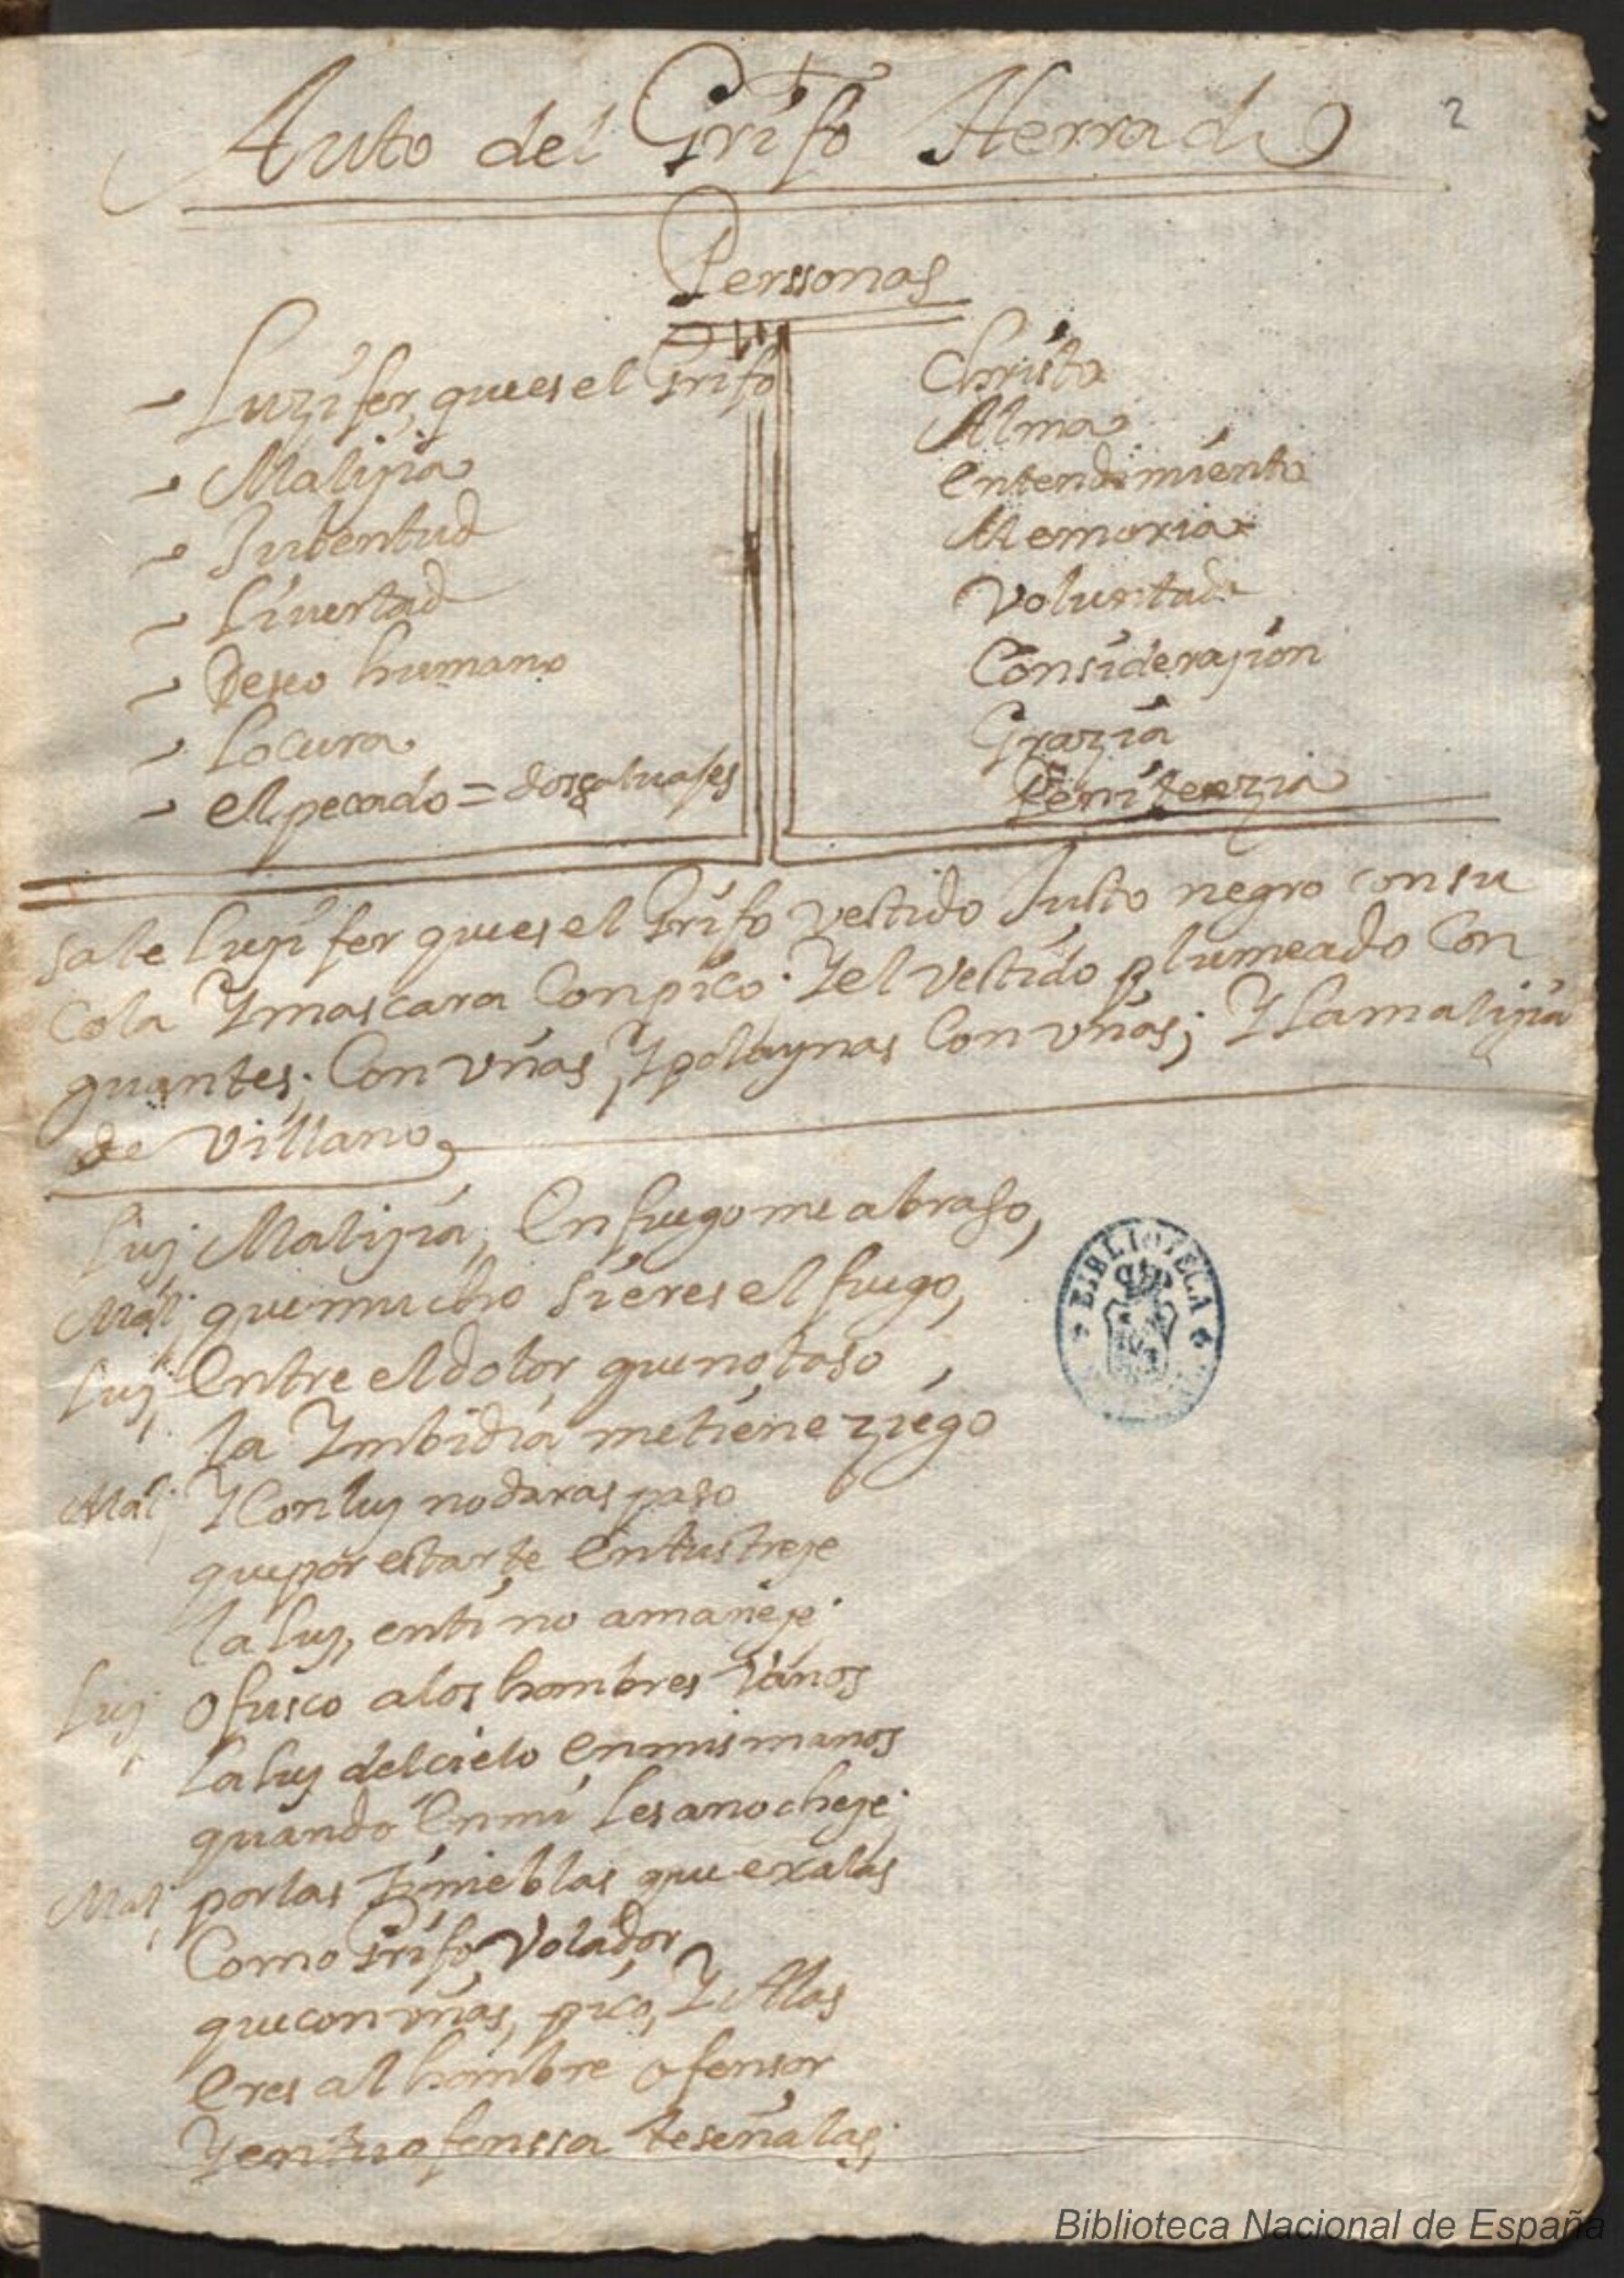 2
Auto del Grifo Herrado
Perssonas
Luzifer, que es el Grifo
Maliçia
Jubentud
Livertad
Deseo humano
Locura
el pecado = dos salvajes
Christo
Alma
entendimiento
Memoria
Voluntad
Consideraçion
Grazia
Penitenzia
Sale luçifer que es el Grifo vestido Justo negro con su
Cola Y mascara Con pico Y el vestido plumeado Con
guantes; Con vñas, Y polaynas Con vñas; Y La maliçia
de villano
Luz Maliçia, En fuego me abraso,
Mali que mucho si eres el fuego,
Luz Entre el dolor que no taso
la Ymbidia me tiene ziego
Mali Y Con luz no daras paso
que por estarte En tus treçe
la luz, en ti no amaneçe
Luz Ofusco a los hombres vanos
La luz del cielo En mis manos
quando En mi Les anocheçe
Mali por las tinieblas que exalas
Como Grifo Volador
que con vñas, pico, Y Alas
Eres al hombre ofensor
Y en tu ofenssa te señalas,
BIBLIOTECA
Biblioteca Nacional de España